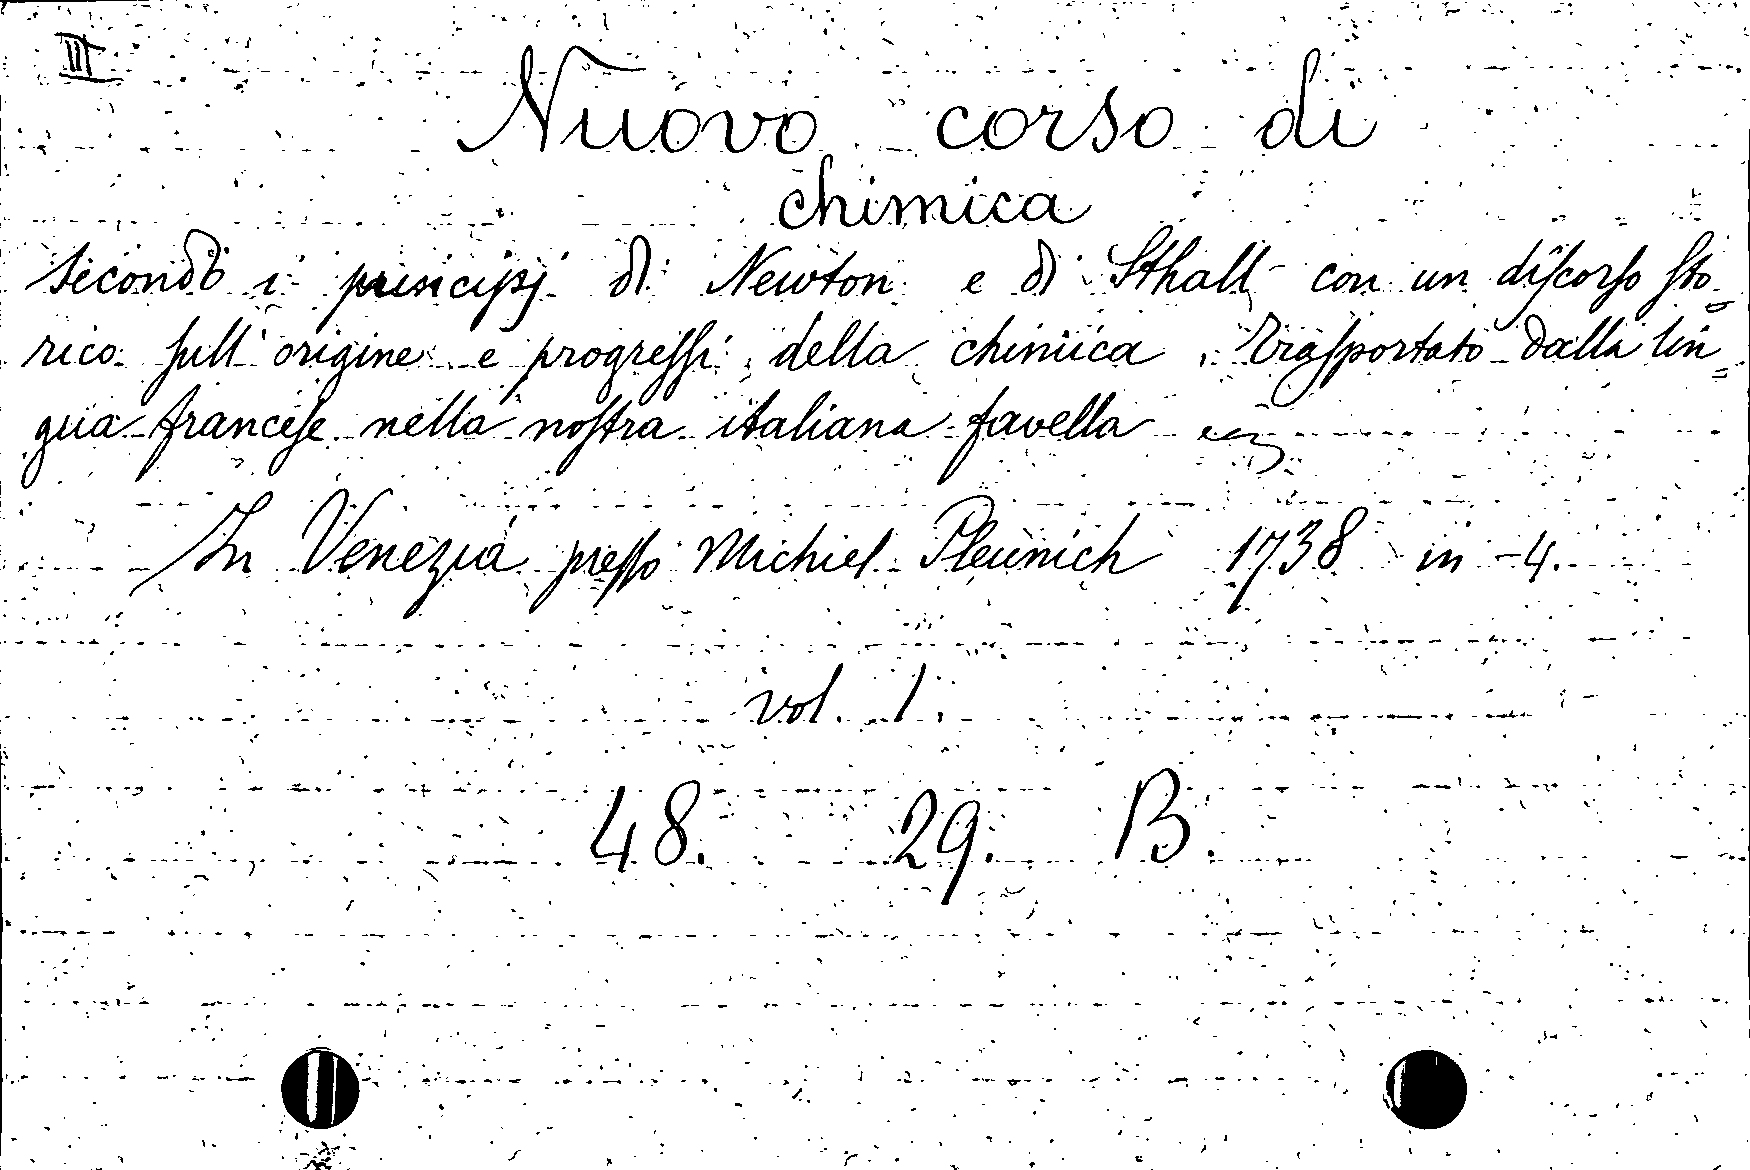 III
Nuovo corso di
chimica
secondo i principj di Newton e di Sthall con un diſcorſo ſto=
rico ſull' origine e progreſſi della chimica, traſportato dalla lin=
gua franceſe nella noſtra italiana favella
In Venezia preſſo Michiel Pleunich 1738 in -4.
vol. 1.
48. 29. B.